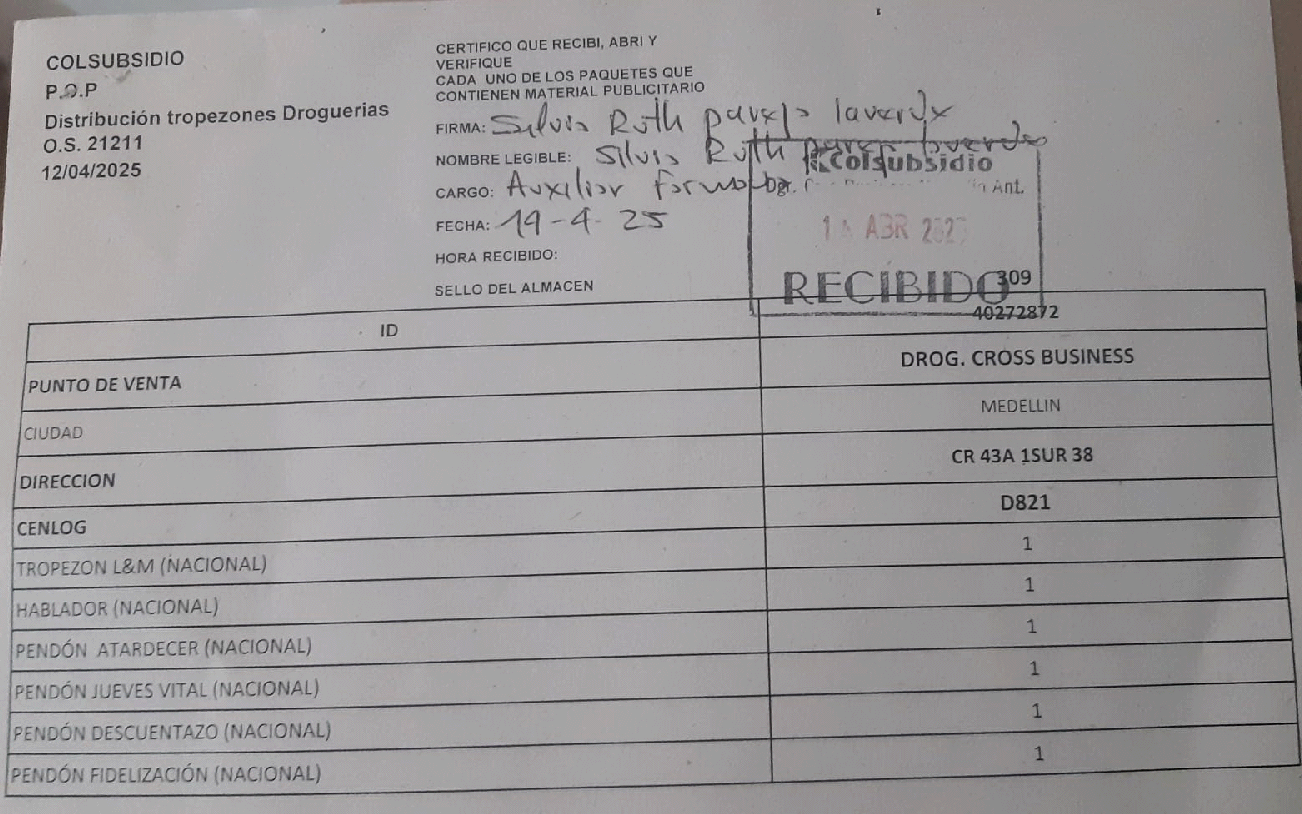 COLSUBSIDIO
P.O.P
Distribución tropezones Droguerias
O.S. 21211
12/04/2025
CERTIFICO QUE RECIBI, ABRI Y
VERIFIQUE
CADA UNO DE LOS PAQUETES QUE
CONTIENEN MATERIAL PUBLICITARIO
FIRMA: Silvis Ruth
NOMBRE LEGIBLE: Silvis Ruth
CARGO: Auxiliar
FECHA: 19-4-25
HORA RECIBIDO:
SELLO DEL ALMACEN
Colsubsidio
Ant.
ABR
RECIBIDO
309
ID 40272872
PUNTO DE VENTA DROG. CROSS BUSINESS
CIUDAD MEDELLIN
DIRECCION CR 43A 1SUR 38
CENLOG D821
TROPEZON L&M (NACIONAL) 1
HABLADOR (NACIONAL) 1
PENDÓN ATARDECER (NACIONAL) 1
PENDÓN JUEVES VITAL (NACIONAL) 1
PENDÓN DESCUENTAZO (NACIONAL) 1
PENDÓN FIDELIZACIÓN (NACIONAL) 1